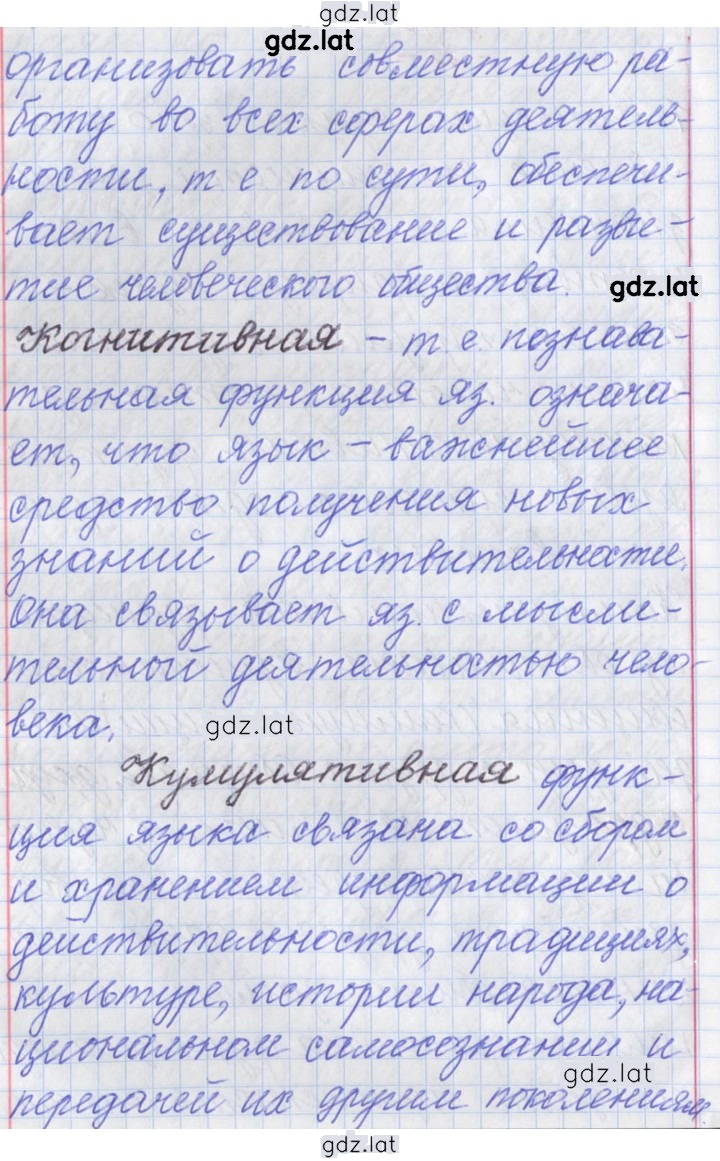 gdz.lat
gdz.lat
организовать совместную ра-
боту во всех сферах деятель-
ности, т е по сути, обеспечи-
вает существование и разви-
тие человеческого общества.
gdz.lat
Когнитивная - т е познава-
тельная функция яз. означа-
ет, что язык - важнейшее
средство получения новых
знаний о действительности.
Она связывает яз. с мысли-
тельной деятельностью чело-
века.
gdz.lat
Кумулятивная функ-
ция языка связана со сбором
и хранением информации о
действительности, традициях,
культуре, истории народа, на-
циональном самосознании и
gdz.lat
передачей их другим поколениям.
gdz.lat